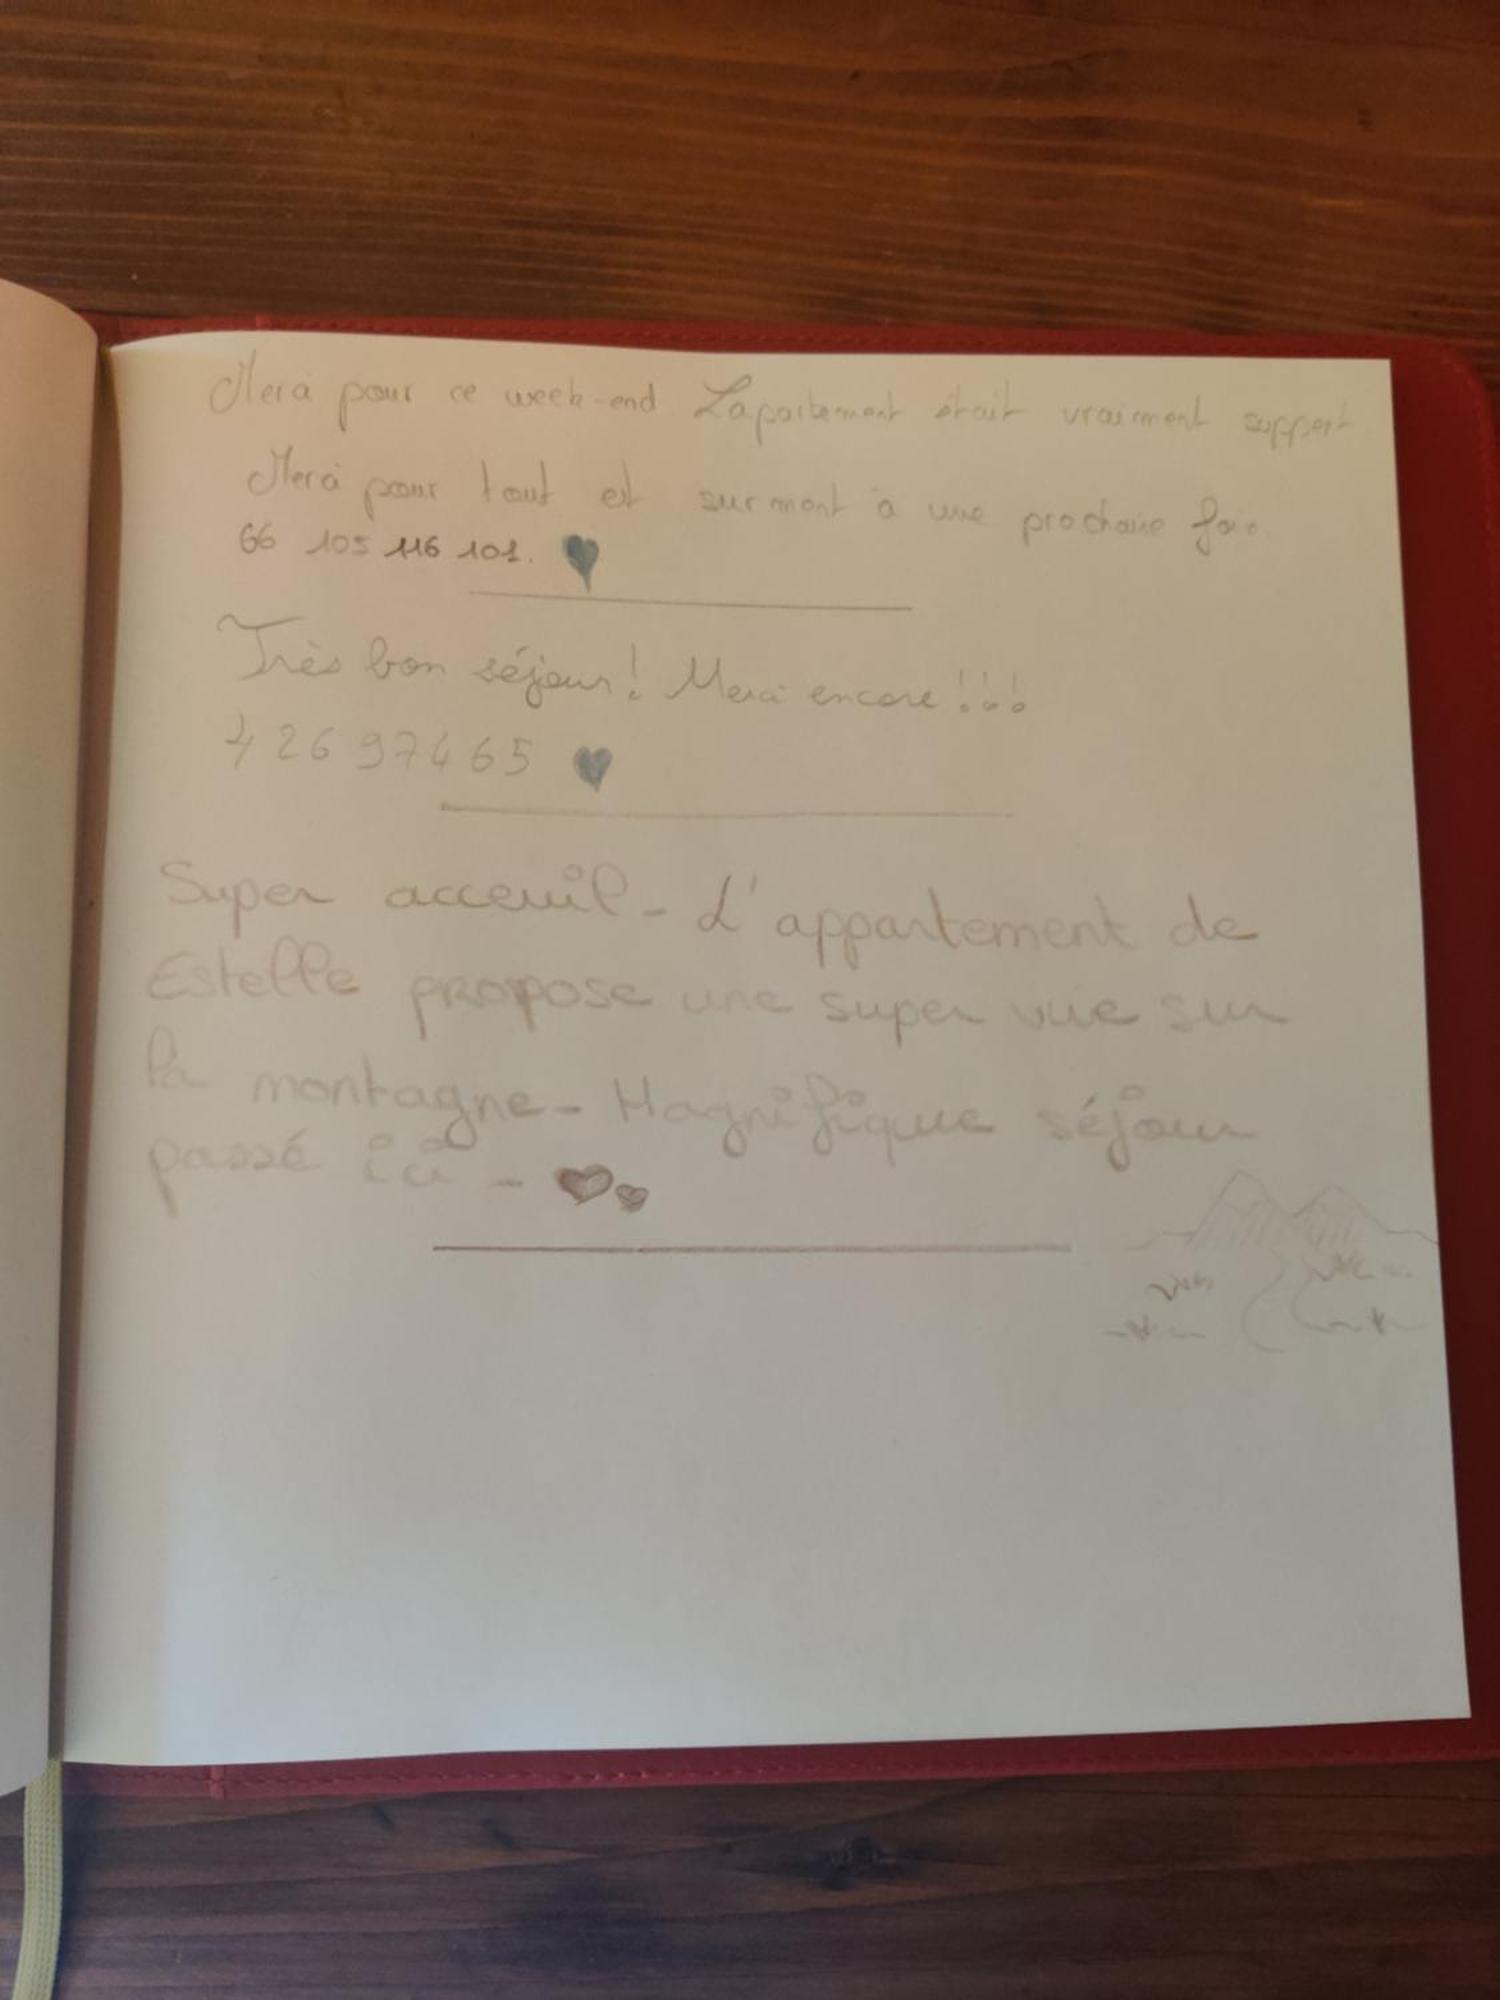 Merci pour ce week-end. L'apartement était vraiment suppert
Merci pour tout et surmont à une prochaine fois
66 105 116 101.
Très bon séjour! Merci encore!!!
4 26 97465
Super acceuil - L'appartement de
Estelle propose une super vue sur
la montagne - Magnifique séjour
passé ici -